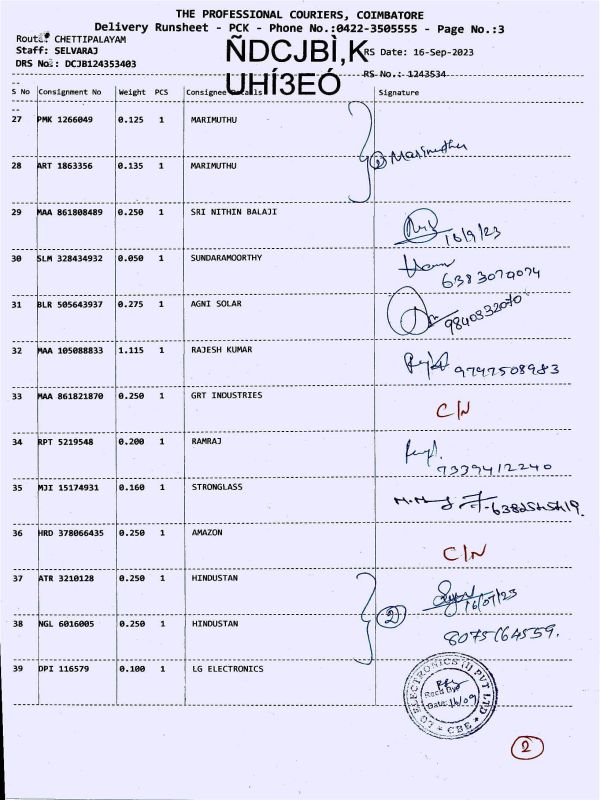 THE PROFESSIONAL COURIERS, COIMBATORE
Delivery Runsheet - PCK - Phone No.:0422-3505555 - Page No.:3
Route: CHETTIPALAYAM
Staff: SELVARAJ
ÑDCJBÌ,K
RS Date: 16-Sep-2023
DRS No.: DCJB124353403
UHÍ3EÓ
RS No.: 1243534
S No Consignment No Weight PCS Consignee Details Signature
27 PMK 1266049 0.125 1 MARIMUTHU
2 Marimuthu
28 ART 1863356 0.135 1 MARIMUTHU
29 MAA 861808489 0.250 1 SRI NITHIN BALAJI
16/9/23
30 SLM 328434932 0.050 1 SUNDARAMOORTHY
6383079074
31 BLR 505643937 0.275 1 AGNI SOLAR
9840332070
32 MAA 105088833 1.115 1 RAJESH KUMAR
9747508983
33 MAA 861821870 0.250 1 GRT INDUSTRIES
C/N
34 RPT 5219548 0.200 1 RAMRAJ
9339412240
35 MJI 15174931 0.160 1 STRONGLASS
36 HRD 378066435 0.250 1 AMAZON
C/N
37 ATR 3210128 0.250 1 HINDUSTAN
2
38 NGL 6016005 0.250 1 HINDUSTAN
39 DPI 116579 0.100 1 LG ELECTRONICS
LG ELECTRONICS (I) PVT LTD
Recd By
Date: 16/09
CBE
2